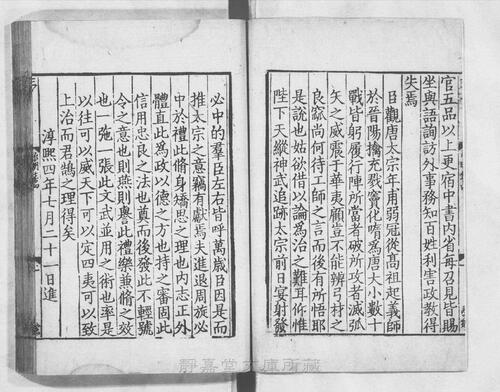 官五品以上更宿中書內省每召見皆賜
坐與語詢訪外事務知百姓利害政教得
失焉
臣觀唐太宗年甫弱冠從高祖起義師
於晉陽擒充戮竇化隋為唐大小數十
戰皆躬履行陣所當者破所攻者滅弧
矢之威震于華夷顧豈不能辨弓材之
良窳尚何待工師之言而後有所悟耶
是說也姑欲借以論為治之難耳仰惟
陛下天縱神武追跡太宗前日宴射發
必中的羣臣左右皆呼萬歲臣因是而
推太宗之意竊有獻焉夫進退周旋必
中於禮此脩身矯思之理也內志正外
體直此為政以德之方也持之審固此
信用忠良之法也莫而後發此不輕號
令之意也則燕則譽此禮樂兼脩之效
也一弛一張此文武並用之術也率是
以往可以威天下可以定四夷可以致
上治而君鵠之理得矣
淳熙四年七月二十一日進
靜嘉堂文庫所藏